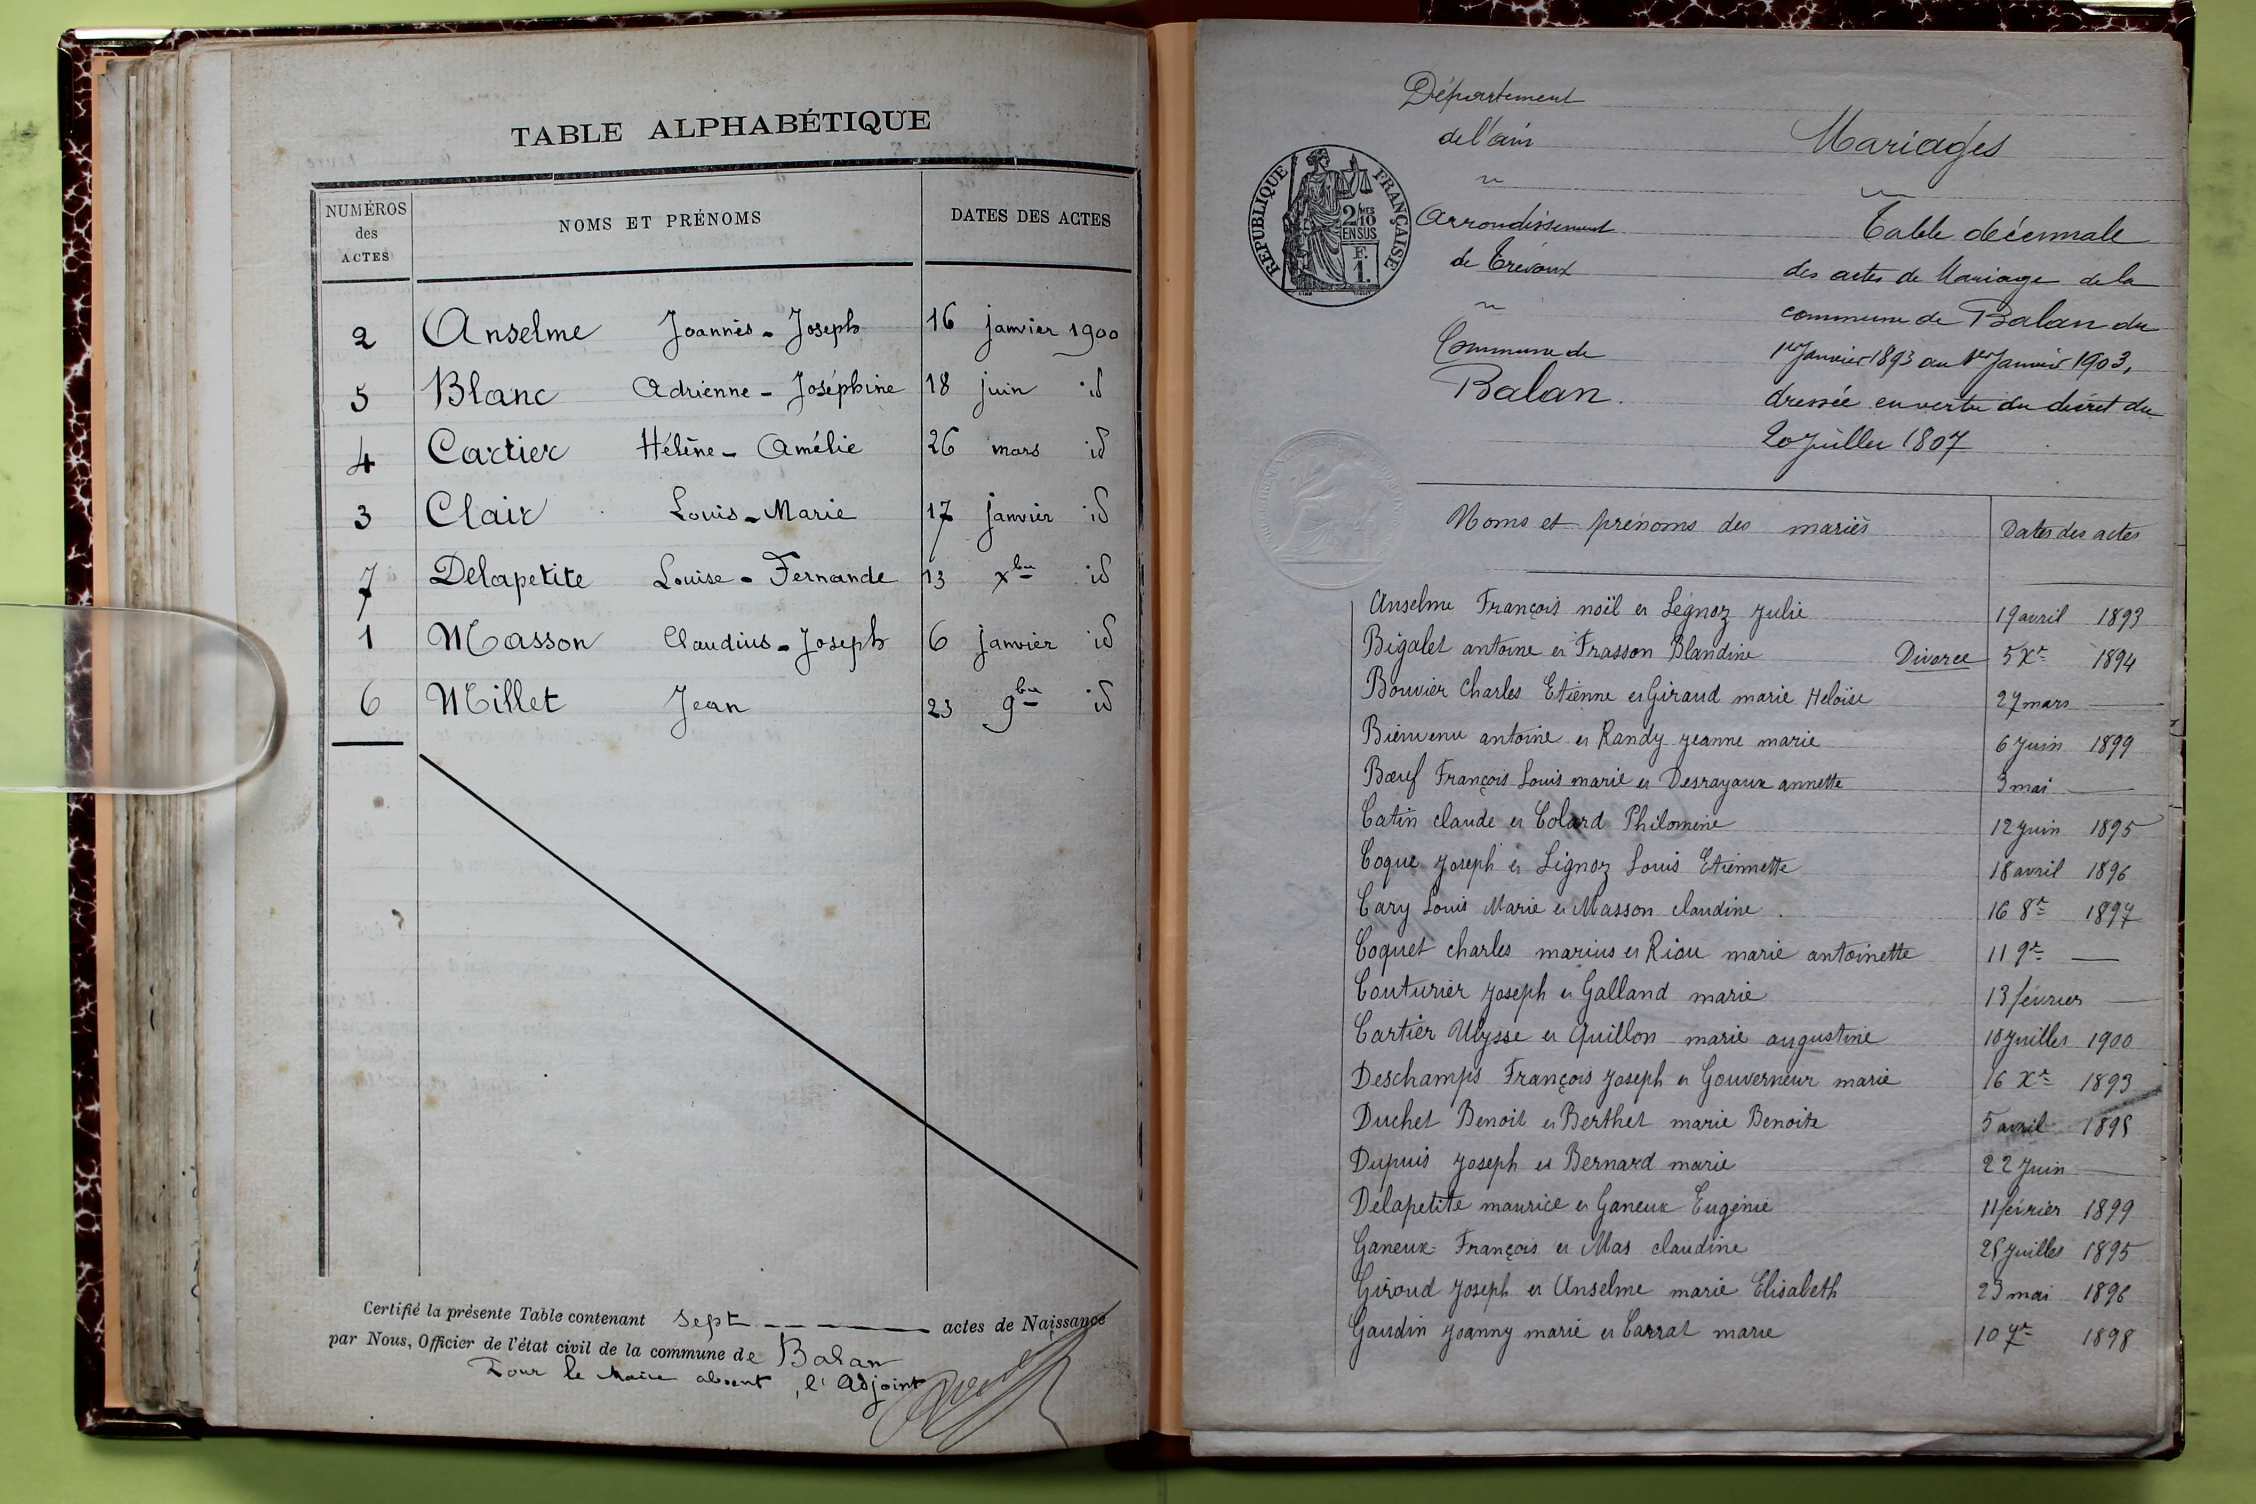 TABLE ALPHABÉTIQUE
NUMÉROS des ACTES
NOMS ET PRÉNOMS
DATES DES ACTES
2 Anselme Joannès-Joseph 16 janvier 1900
5 Blanc Adrienne-Joséphine 18 juin id
4 Cartier Hélène-Amélie 26 mars id
3 Clair Louis-Marie 17 janvier id
7 Delapetite Louise-Fernande 13 xbre id
1 Masson Claudius-Joseph 6 janvier id
6 Millet Jean 23 9bre id
Certifié la présente Table contenant sept actes de Naissance
par Nous, Officier de l'état civil de la commune de Balan
Pour le Maire absent, l'Adjoint
Département
de l'ain
Arrondissement
de Trévoux
Commune de
Balan.
RÉPUBLIQUE FRANÇAISE
2/10 EN SUS
F. 1.
Mariages
Table décennale
des actes de Mariage de la
commune de Balan du
1er Janvier 1893 au 1er Janvier 1903,
dressée en vertu du décret du
20 juillet 1807
Noms et prénoms des mariés Dates des actes
Anselme François noël et Légnoz Julie 19 avril 1893
Bigalet antoine et Frasson Blandine Divorce 5 Xre 1894
Bouvier Charles Etienne et Giraud marie Heloïse 27 mars —
Bienvenu antoine et Randy jeanne marie 6 juin 1899
Bœuf François Louis marie et Desrayaux annette 3 mai —
Catin claude et Colard Philomene 12 juin 1895
Coque Joseph et Lignoz Louis Etiennette 18 avril 1896
Cary Louis Marie et Masson claudine. 16 8re 1897
Coquet charles marius et Riou marie antoinette 11 9re —
Couturier Joseph et Galland marie 13 février —
Cartier Ulysse et Quillon marie augustine 10 juillet 1900
Deschamps François Joseph et Gouverneur marie 16 Xre 1893
Duchet Benoit et Berthet marie Benoite 5 avril 1895
Dupuis Joseph et Bernard marie 22 juin —
Délapetite maurice et Ganeux Eugénie 11 février 1899
Ganeux François et Mas claudine 25 juillet 1895
Giroud Joseph et Anselme marie Elisabeth 23 mai 1896
Gaudin Joanny marie et Carrat marie 10 7re 1898